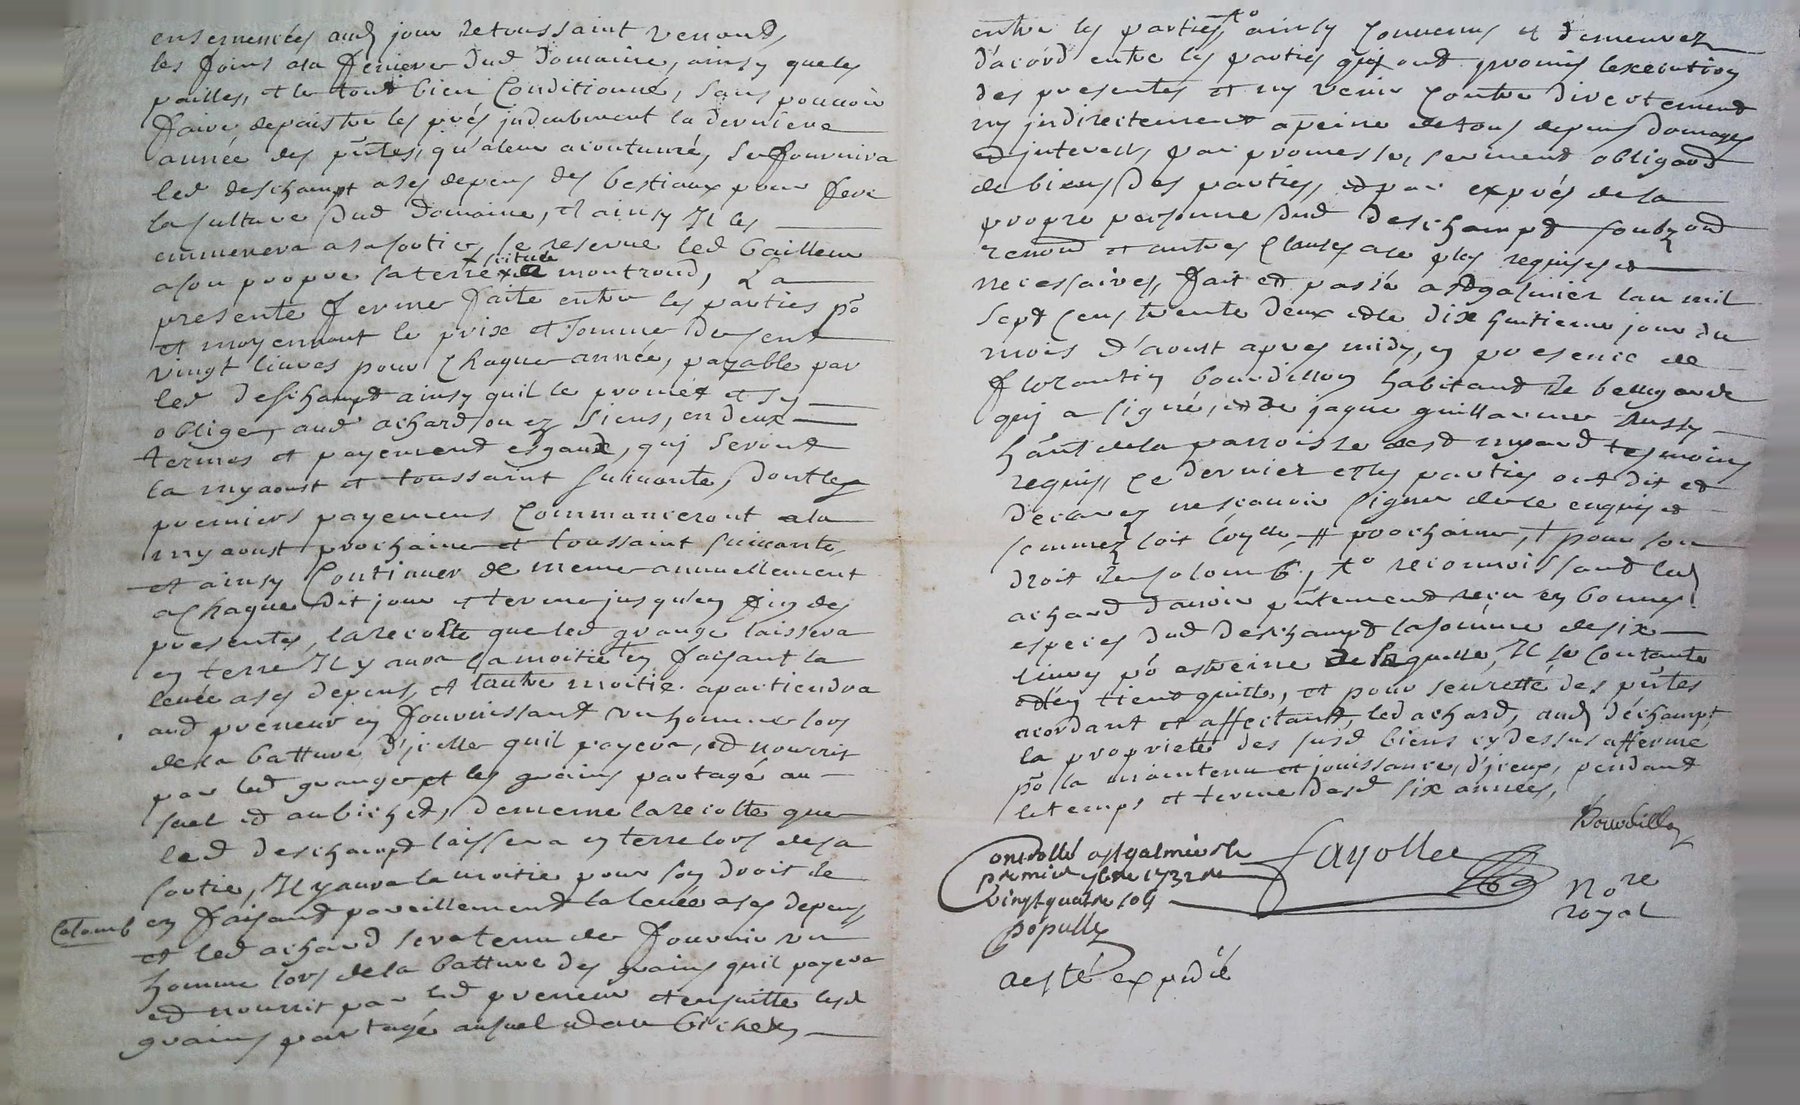 ensemencées aud jour de toussaint
les foins a la feniere dud Domaine, ainsy que les
pailles, et le tout bien Conditionné, sans pouvoir
faire depaistre les prés induement la derniere
année des pntes, qu'a leur acoutumé, se fournira
led deschampt a ses depens des bestiaux pour fere
la culture dud Domaine, et ainsy Il les
emmenera a sa sortie, se reserve led bailleur
a son propre la terre scituée a montrond, La
presente ferme faite entre les parties po
et moyennant le prix et somme de sent
vingt livres pour Chaque année, payable par
led deschampt ainsy quil le promet et sy
oblige, aud achard ou ez siens, en deux
termes et payement esgaux, quj seront
la myaoust et toussaint suivante, dont les
premiers payemens Commanceront a la
myaoust prochaine et toussaint suivante,
et ainsy Continuer de meme annuellement
a chaque dit jour et terme jusqu'en fin des
presentes, la recolte que led granger laissera
en terre Il y aura la moitié en faisant la
levée a ses depens, et l'autre moitié apartiendra
aud preneur en fournissant un homme lors
de la batture d'jcelle quil payera, et nourrit
par led granger et les grains partagé au
suel et au bichet, de meme la recolte que
led deschampt laissera en terre lors de sa
sortie, Il y aura la moitié pour son droit de
Colomb en faisant pareillement la levée a ses depens,
et led achard sera tenu de fournir un
homme lors de la batture des grains quil payera
et nourrit par led preneur et ensuitte lesd
grains partagé au suel et au bichet,
entre les parties, to ainsy Convenus et demeurez
d'acord entre les parties quj ont promis lexecution
des presentes et ny venir Contre directement
ny jndirectement a peine de tous depens Domages
et jnterests, par promesse, serment obligaon
de biens des parties, et par exprés de la
propre personne dud Deschampt soubzon
renon et autres Clauses a ce plus requises et
necessaires, fait et passé a st galmier lan mil
sept Cens trente deux et le dix huitieme jour du
mois d'aoust apres midy, en presence de
florantin bourdillon habitant de bellegarde
quj a signé, et de jaque guillaume
hant de la parroisse de st myard tesmoins
requis, Ce dernier et les parties ont dit et
declarez ne sçavoir signer de ce enquis et
sommez soit # prochaine, † pour son
droit de Colomb, to reconnoissant led
achard d'avoir pntement reçu en bonnes
especes dud deschampt la somme de six
livres po estreine de laquelle, Il se Contante
et d'en tient quitte, et pour seuretté des pntes
acordant et affectant, led achard, aud dechampt
la proprieté des susd biens cy dessus affermé
po la maintenu et jouissance, d'jceux, pendant
le temps et terme desd six années,
Bourdillon
Controllé a st galmier le
premier 7bre 1732 re
vingt quatre sols
Popully
fayolle
Nore
royal
a esté expedié